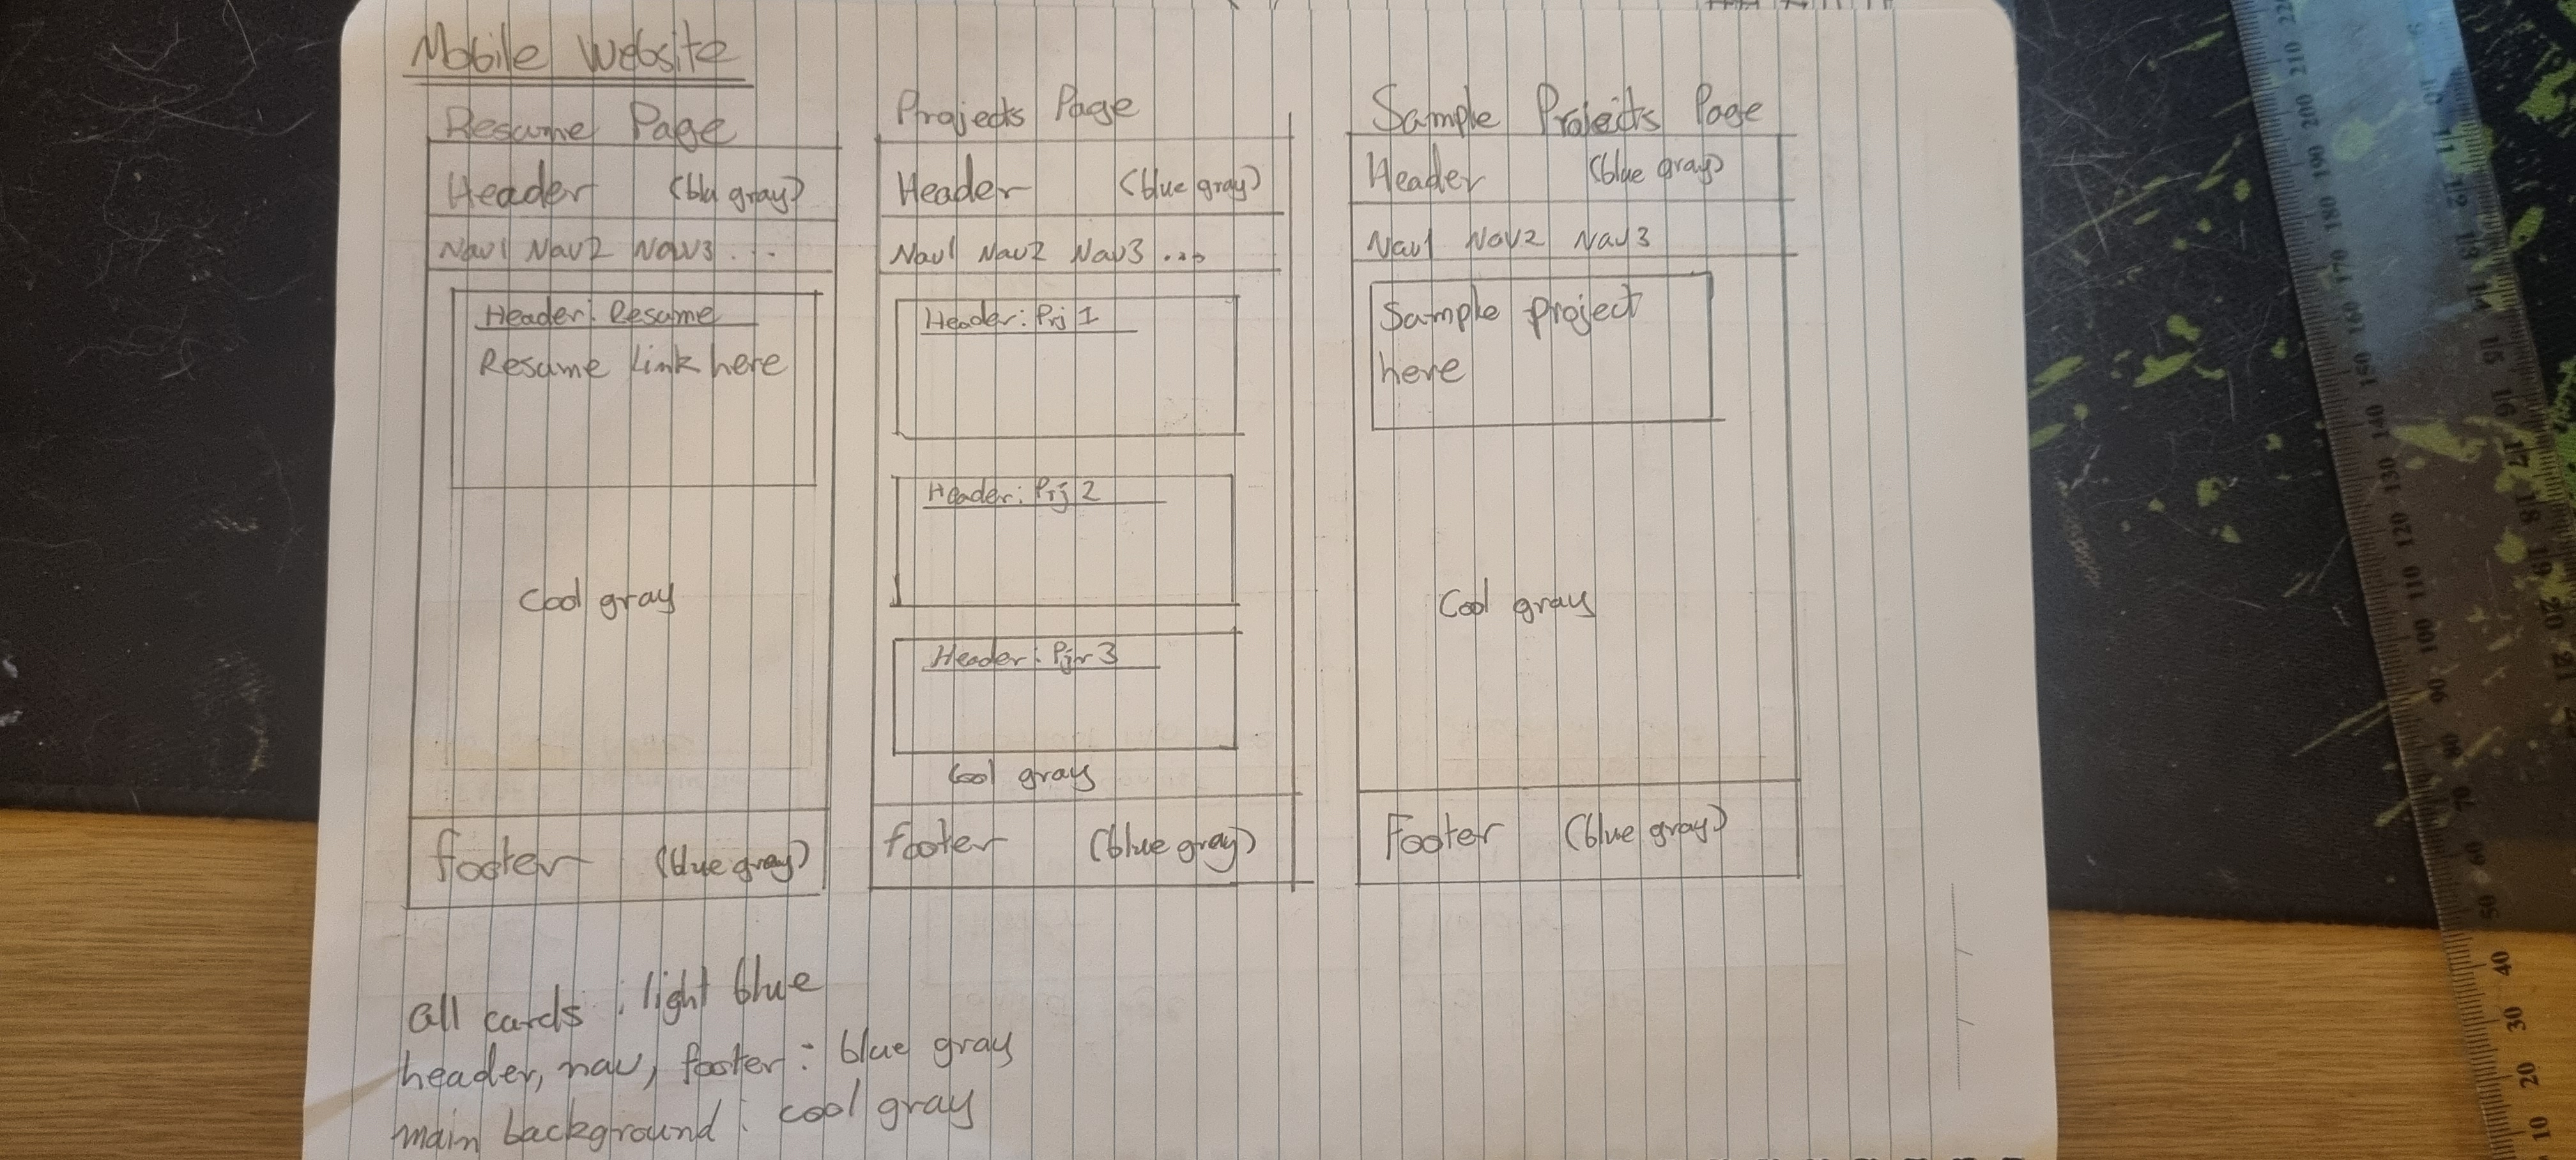 Mobile Website
Resume Page
Header (blu gray)
Nav1 Nav2 Nav3 ...
Header: Resume
Resume link here
Cool gray
footer (blue gray)
Projects Page
Header (blue gray)
Nav1 Nav2 Nav3 ....
Header: Prj 1
Header: Prj 2
Header: Prjr 3
Cool gray
footer (blue gray)
Sample Projects Page
Header (blue gray)
Nav1 Nav2 Nav3
Sample project
here
Cool gray
Footer (blue gray)
all cards : light blue
header, nav, footer : blue gray
main background : cool gray
10 20 30 40 50 60 70 80 90 100 110 120 130 140 150 160 170 180 190 200 210 220
10 11 12 13 14 15 16 17 18 19 20 21